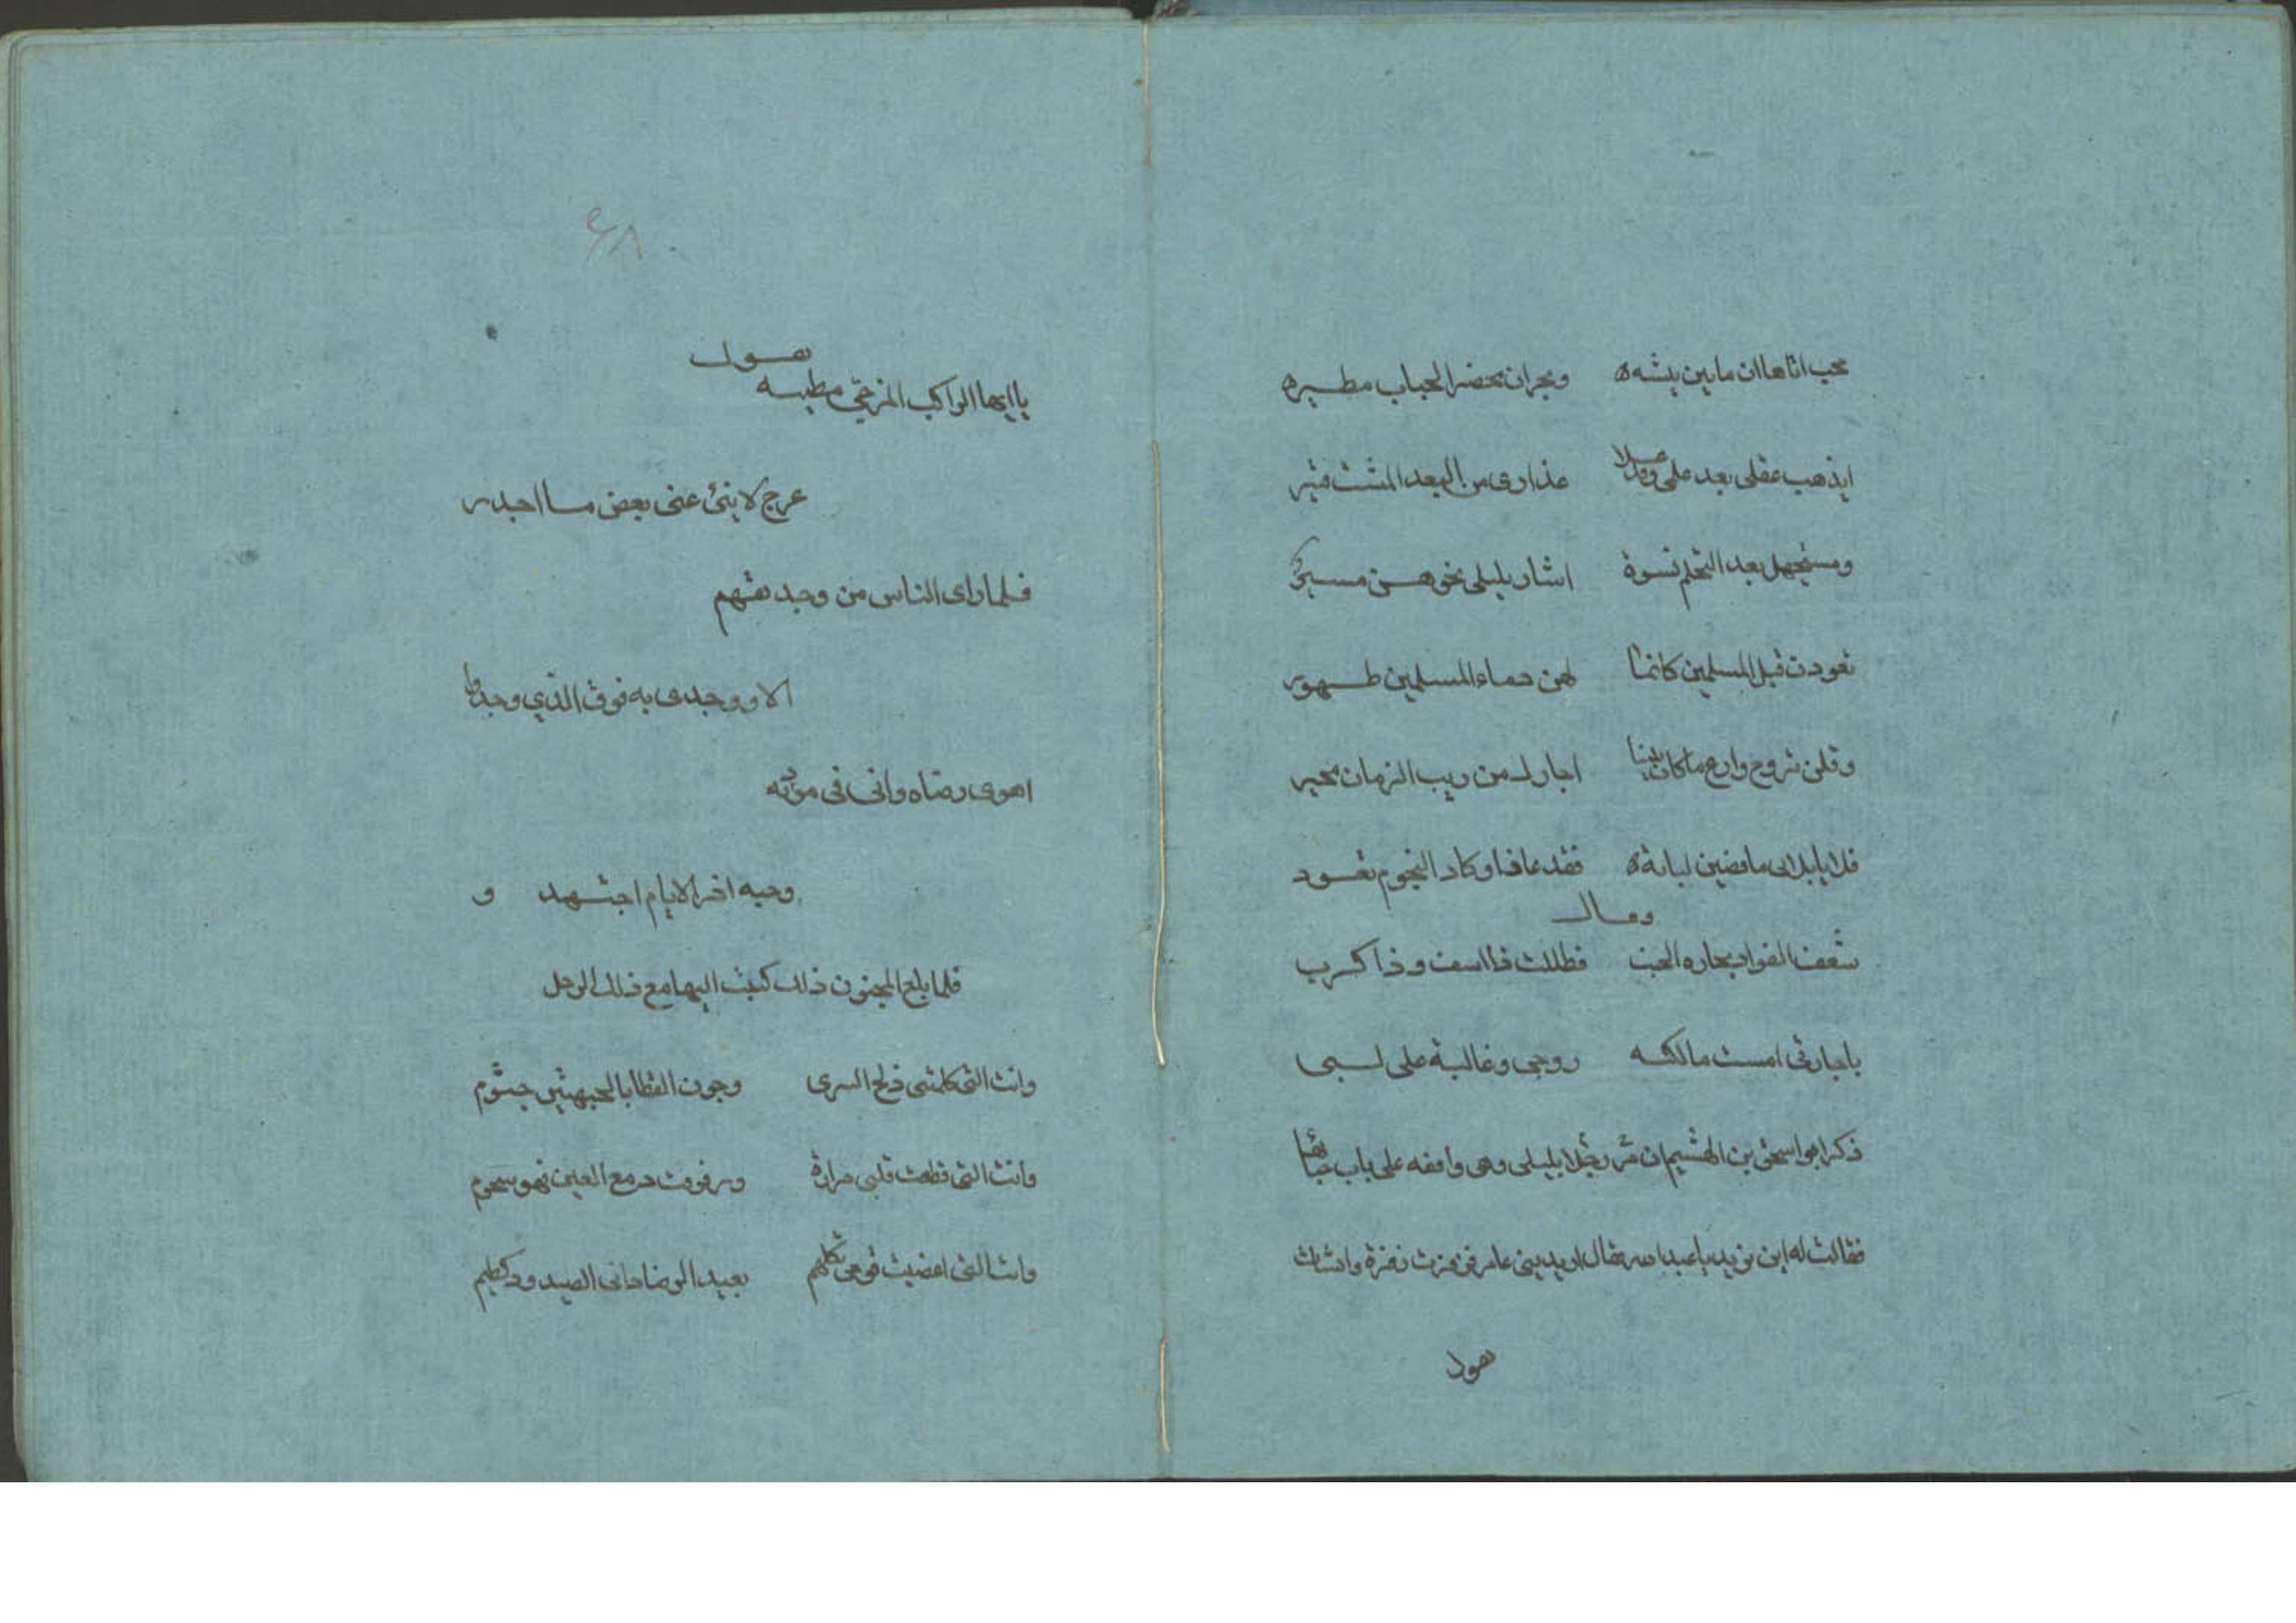 محب اتاها ان ما بين بيشه ونجران محضر الجباب مطيره
ايذهب عقلى بعد علمى وقد علا عذارى من البعد المشت قتير
ومستجهل بعد التحلم نسوة اشار بليلى نحوهن مسير
تعودن قبل المسلمين كانما لهن دماء المسلمين طهور
وقلن تروح وارع ما كان بيننا اجارك من ريب الزمان مجير
فلايا بلاى ما قضين لبانة فقد عافا وكاد النجوم تعود
وقال
شعف الفواد بجاره الجنب فظللت ذا اسف وذا كرب
ياجارتى امست مالكه روحى وغالبة على لبى
ذكر ابو اسحق بن الهشيم ان مر رجلا بليلى وهى واقفه على باب خبائها
فقالت له اين تريد ياعبد الله فقال اريد بنى عامر فزفرت زفرة وانشات
تقول
٤٨
تقول
يا ايها الراكب المزجى مطيه
عرج لا ينئ عنى بعض ما اجد
فلما راى الناس من وجد تقهم
الا ووجدى به فوق الذي وجدوا
اهوى رضاه وانى فى مودته
وحبه اخر الايام اجتهد و
فلما بلغ المجنون ذلك كتبت اليها مع ذلك الرجل
وانت التى كلفتنى دلج السرى وجون القطا بالجبهتين جثوم
وانت التى قطعت قلبى حرارة ورقرقت دمع العين فهو سجوم
وانت التى اغضبت قومى فكلهم بعيد الرضا دانى الصدود كظيم